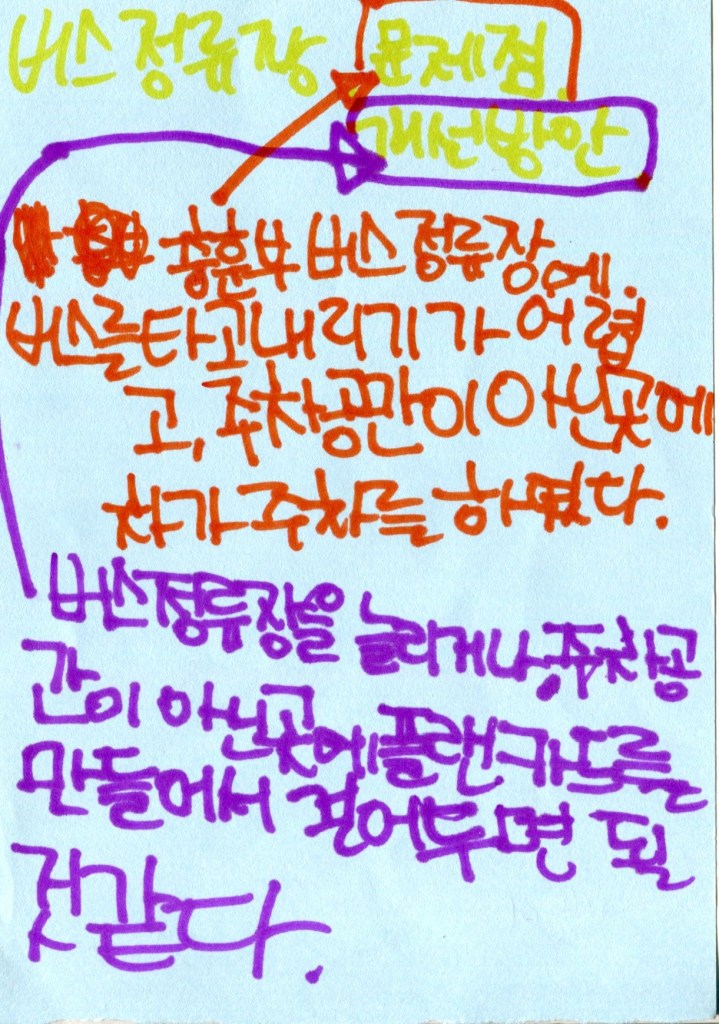 버스정류장 문제점
개선방안
승훈부 버스정류장에.
버스를타고내리기가 어렵
고, 주차공만이 아닌곳에
차가 주차를 하였다.
버스정류장을 늘리거나, 주차공
간이 아닌곳에 플랜카드를
만들어서 걸어두면 될
것같다.